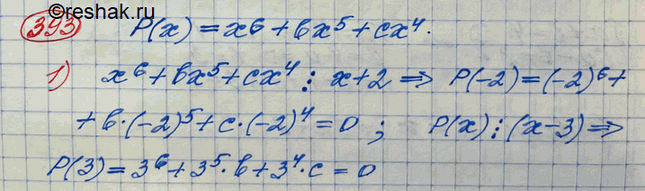 ©reshak.ru
393 P(x) = x⁶ + bx⁵ + cx⁴.
1) x⁶ + bx⁵ + cx⁴ ⋮ x+2 ⇒ P(-2) = (-2)⁶ +
+ b·(-2)⁵ + c·(-2)⁴ = 0 ; P(x) ⋮ (x-3) ⇒
P(3) = 3⁶ + 3⁵·b + 3⁴·c = 0